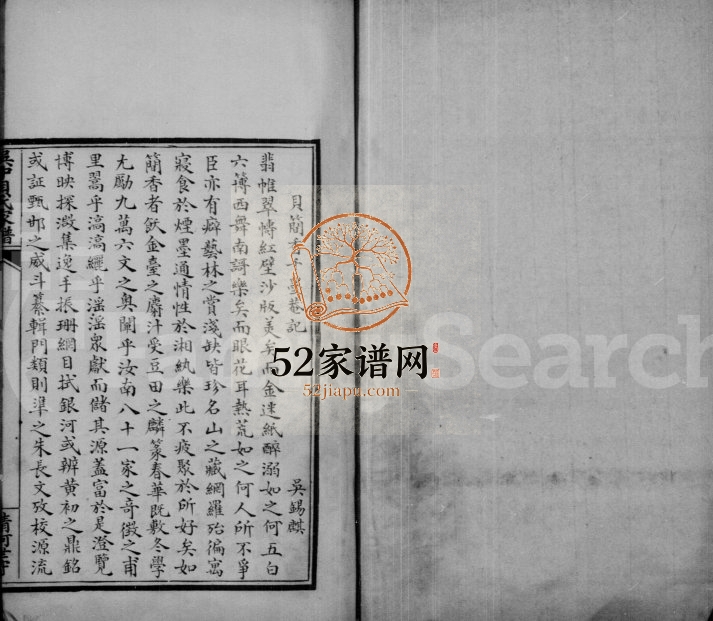 貝簡香
記
吳錫麒
翡帷翠幬紅壁沙版美矣而金迷紙醉溺如之何五白
六簿西舞南謌樂矣而眼花耳熱荒如之何人所不爭
臣亦有癖藝林之賞淺缺皆珍名山之藏網羅殆徧寓
寢食於煙墨通情性於湘紈樂此不疲聚於所好矣如
簡香者飫金臺之麝汁受豆田之麟篆春華既斁冬學
尢勵九萬六文之奧闡乎汝南八十一家之奇徵之甫
里暠乎滈滈纚乎滛滛衆獻而儲其源蓋富於是澄覽
博映探溦集逸手振珊網目拭銀河或辨黄初之鼎銘
或証甄邯之威斗纂輯門類則準之朱長文攷校源流
家譜
清河
52家谱网
52jiapu.com
Search